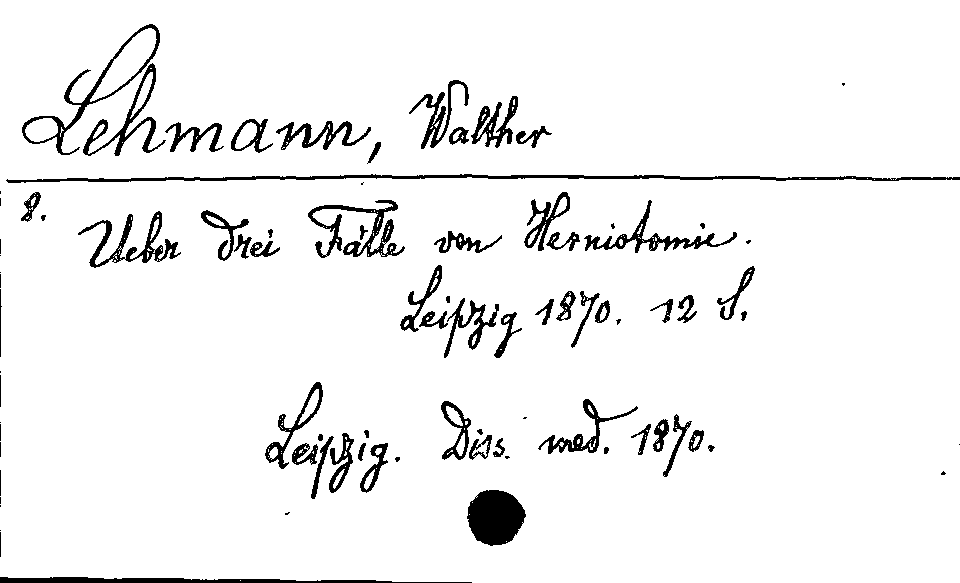 Lehmann, Walther
8.
Ueber drei Fälle von Herniotomie.
Leipzig 1870. 12 S.
Leipzig. Diss. med. 1870.